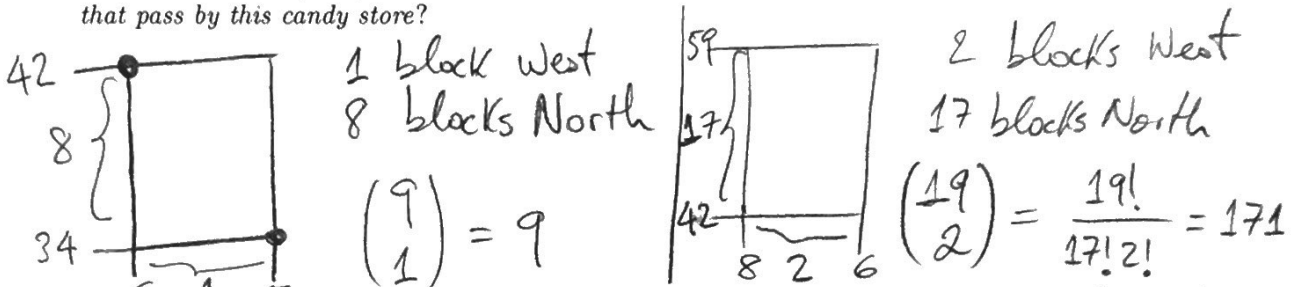 that pass by this candy store?
42
8
34
1 block West
8 blocks North
(9 1) = 9
59
17
42
8 2 6
2 blocks West
17 blocks North
(19 2) = 19! / 17! 2! = 171